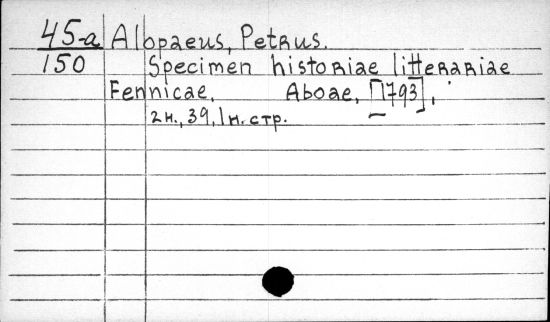 45-a Alopaeus, Petrus.
150 Specimen historiae litterariae
Fennicae, Aboae, [1793],
2н., 39, 1н. стр.